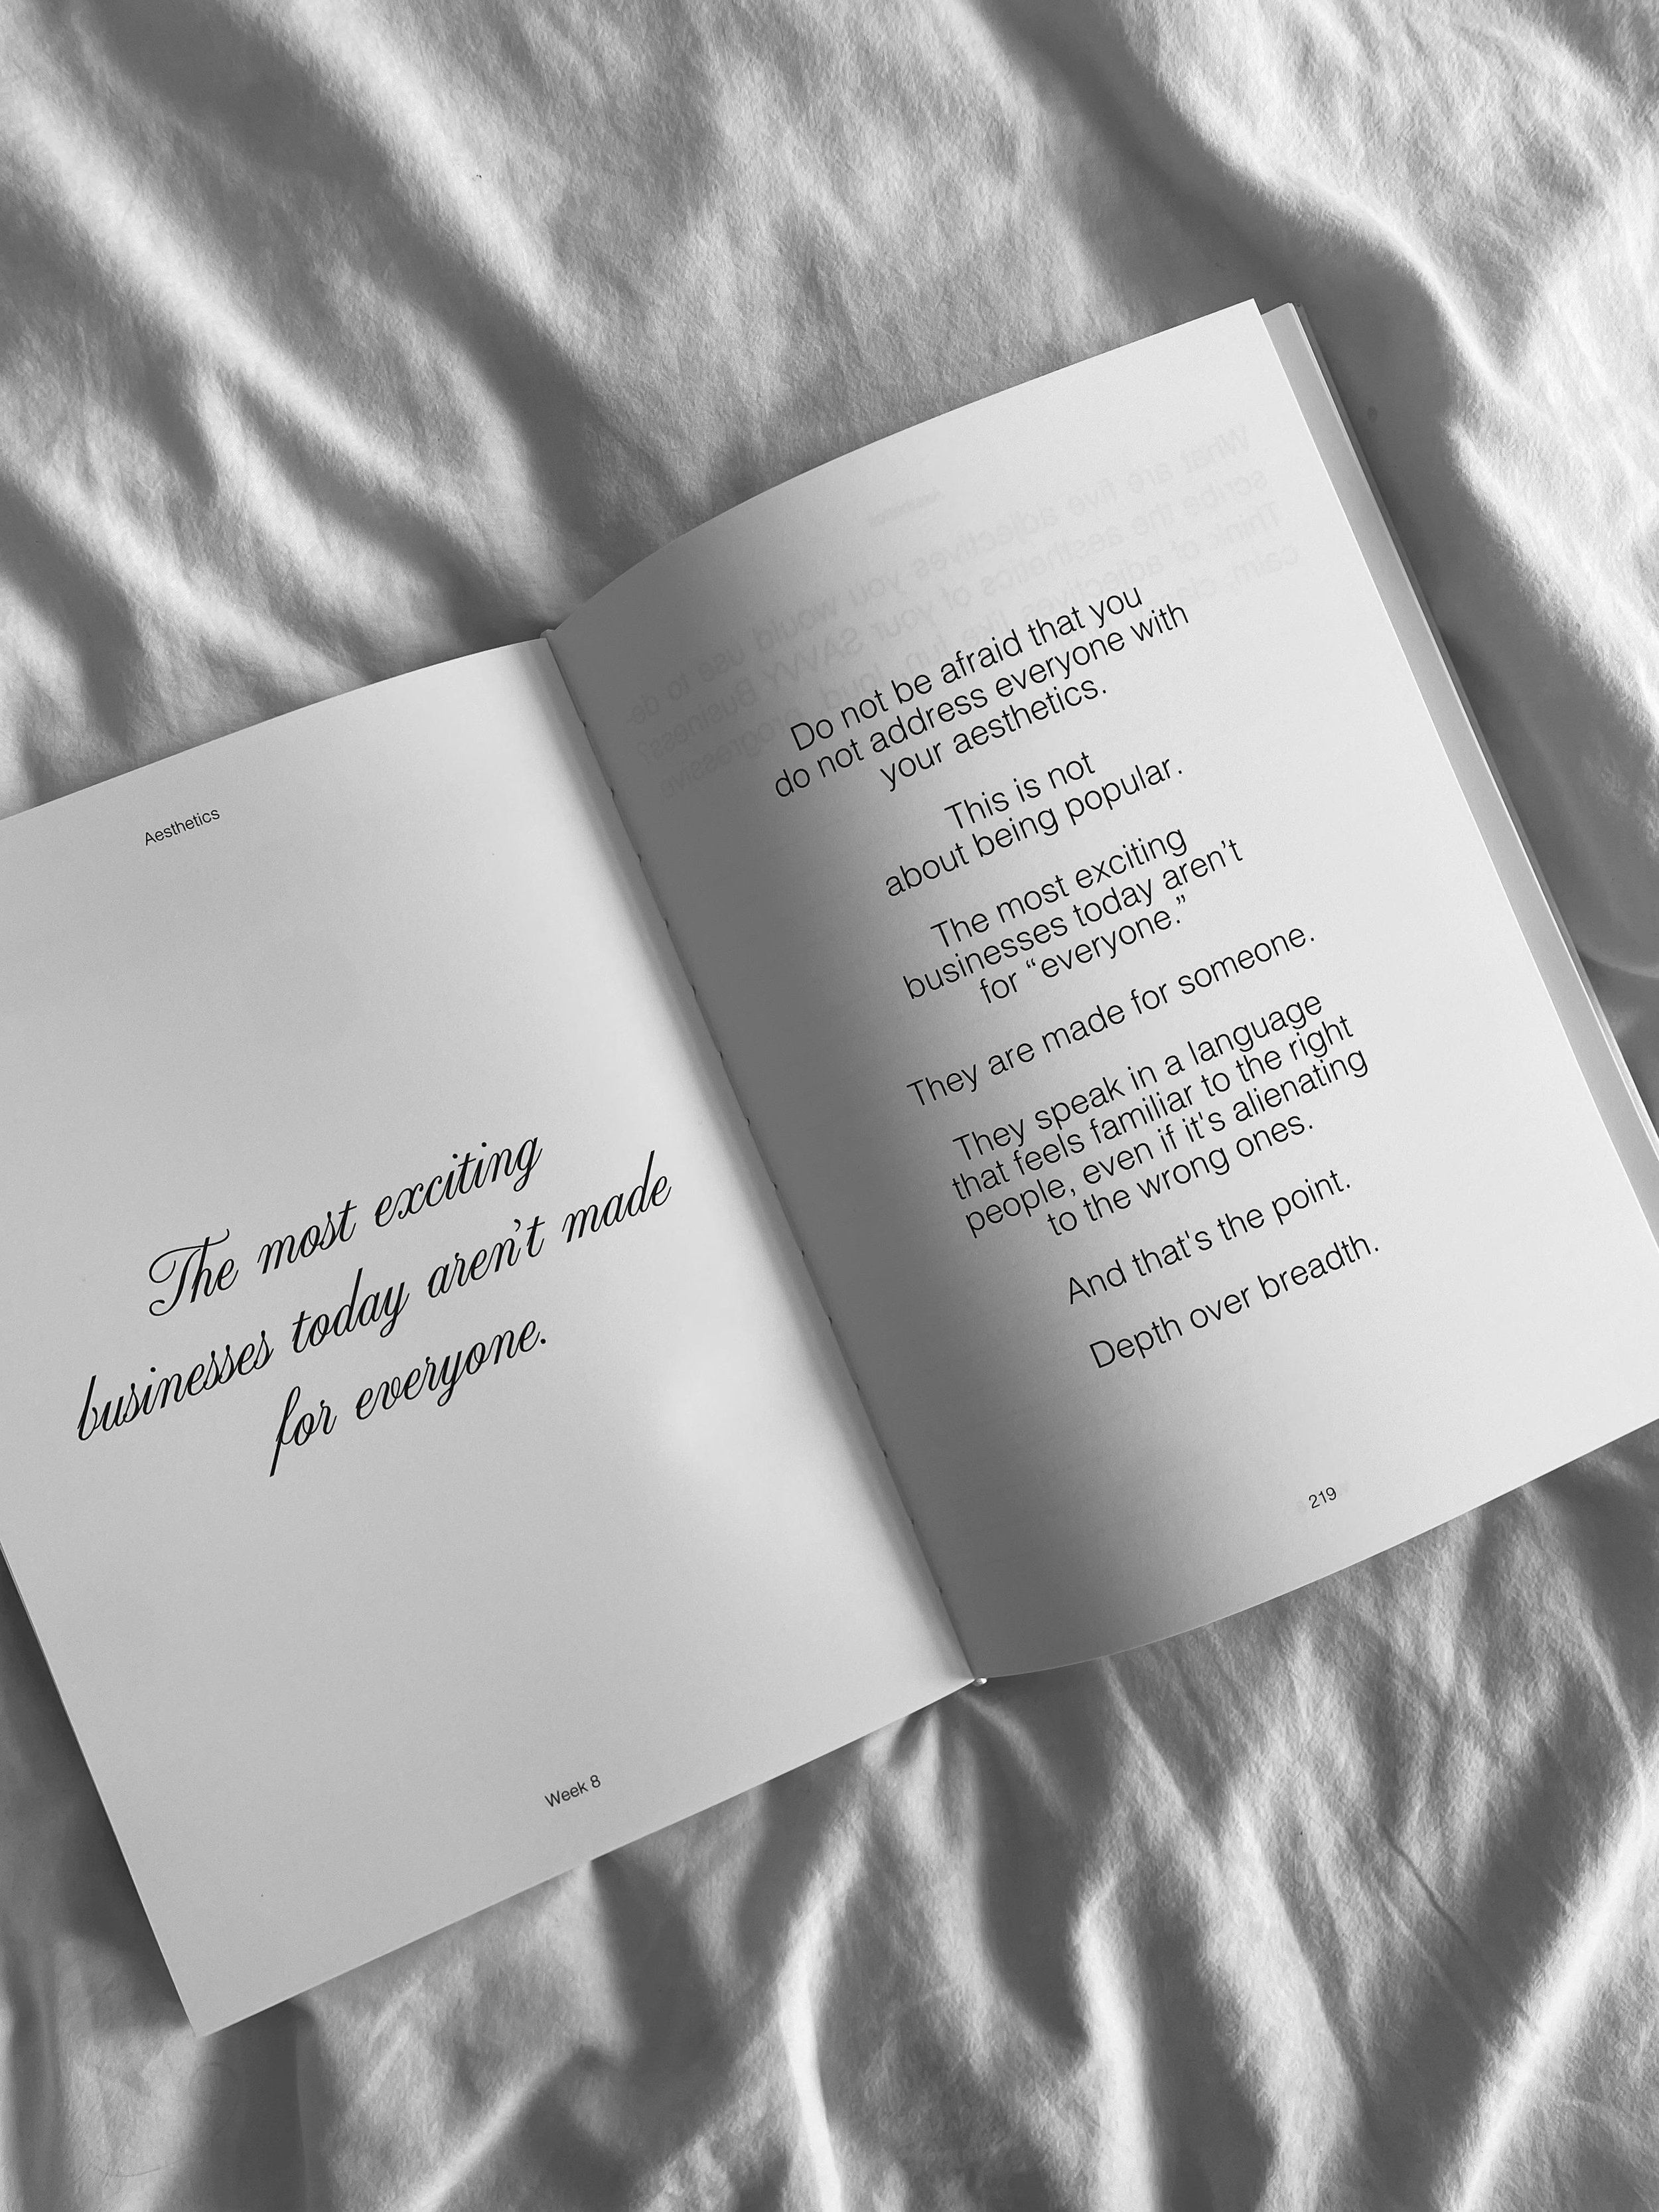 Aesthetics
The most exciting
businesses today aren't made
for everyone.
Week 8
Do not be afraid that you
do not address everyone with
your aesthetics.
This is not
about being popular.
The most exciting
businesses today aren't
for “everyone.”
They are made for someone.
They speak in a language
that feels familiar to the right
people, even if it's alienating
to the wrong ones.
And that's the point.
Depth over breadth.
219